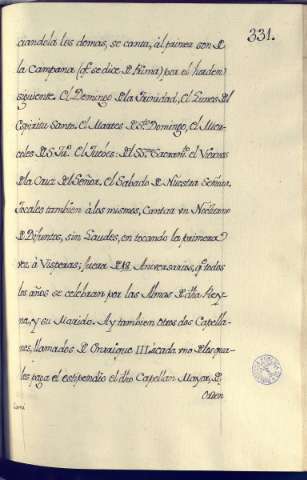 331.
ciandola los demas, se canta, al primer son D.
la Campana (q.e se dice D. Prima) por el horden
siguiente. El Domingo D la Trinidad, el Lunes Dl
Espiritu Santo. El Martes D Sto. Domingo, el Mier-
coles D S. El Jueves Dl SS. Sacram.to el Viernes
D la Cruz Dl Señor. El Sabado D Nuestra Señora.
Tocales tambien à los mismos, Cantar vn Nocturno
D Difuntos, sin Laudes, en tocando la primera
vez à Visperas; fuera D 12 Aniversarios, q.e todos
los años se celebran por las Almas D dha Rey-
na, y su Marido. Ay tambien otros dos Capella-
nes, llamados D Enrrique III. à cada vno D los qua-
les paga el estipendio el dho Capellan Mayor, D.
Orden